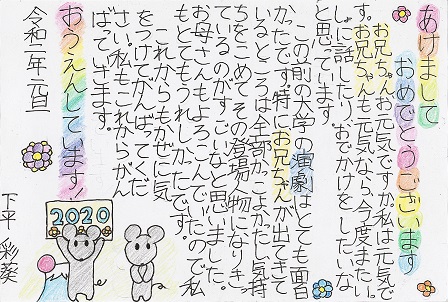 あけまして
おめでとうございます
お兄ちゃんお元気ですか。私は元気で
す。お兄ちゃんも元気なら、今度またい
っしょに話したり、おでかけをしたいな
と思っています。
この前の大学の演劇はとても面白
かったです。特にお兄ちゃんが出てきて
いるところは全部かっこよかった。気持
ちをこめてその登場人物になりきっ
ているのがすごいなと思いました。
お母さんもよろこんでいたので私
もとてもうれしかったです。
これからもかぜに気
をつけてがんばってくだ
さい。私もこれからがん
ばっていきます。
おうえんしています!
令和二年元旦
2020
下平 彩葵